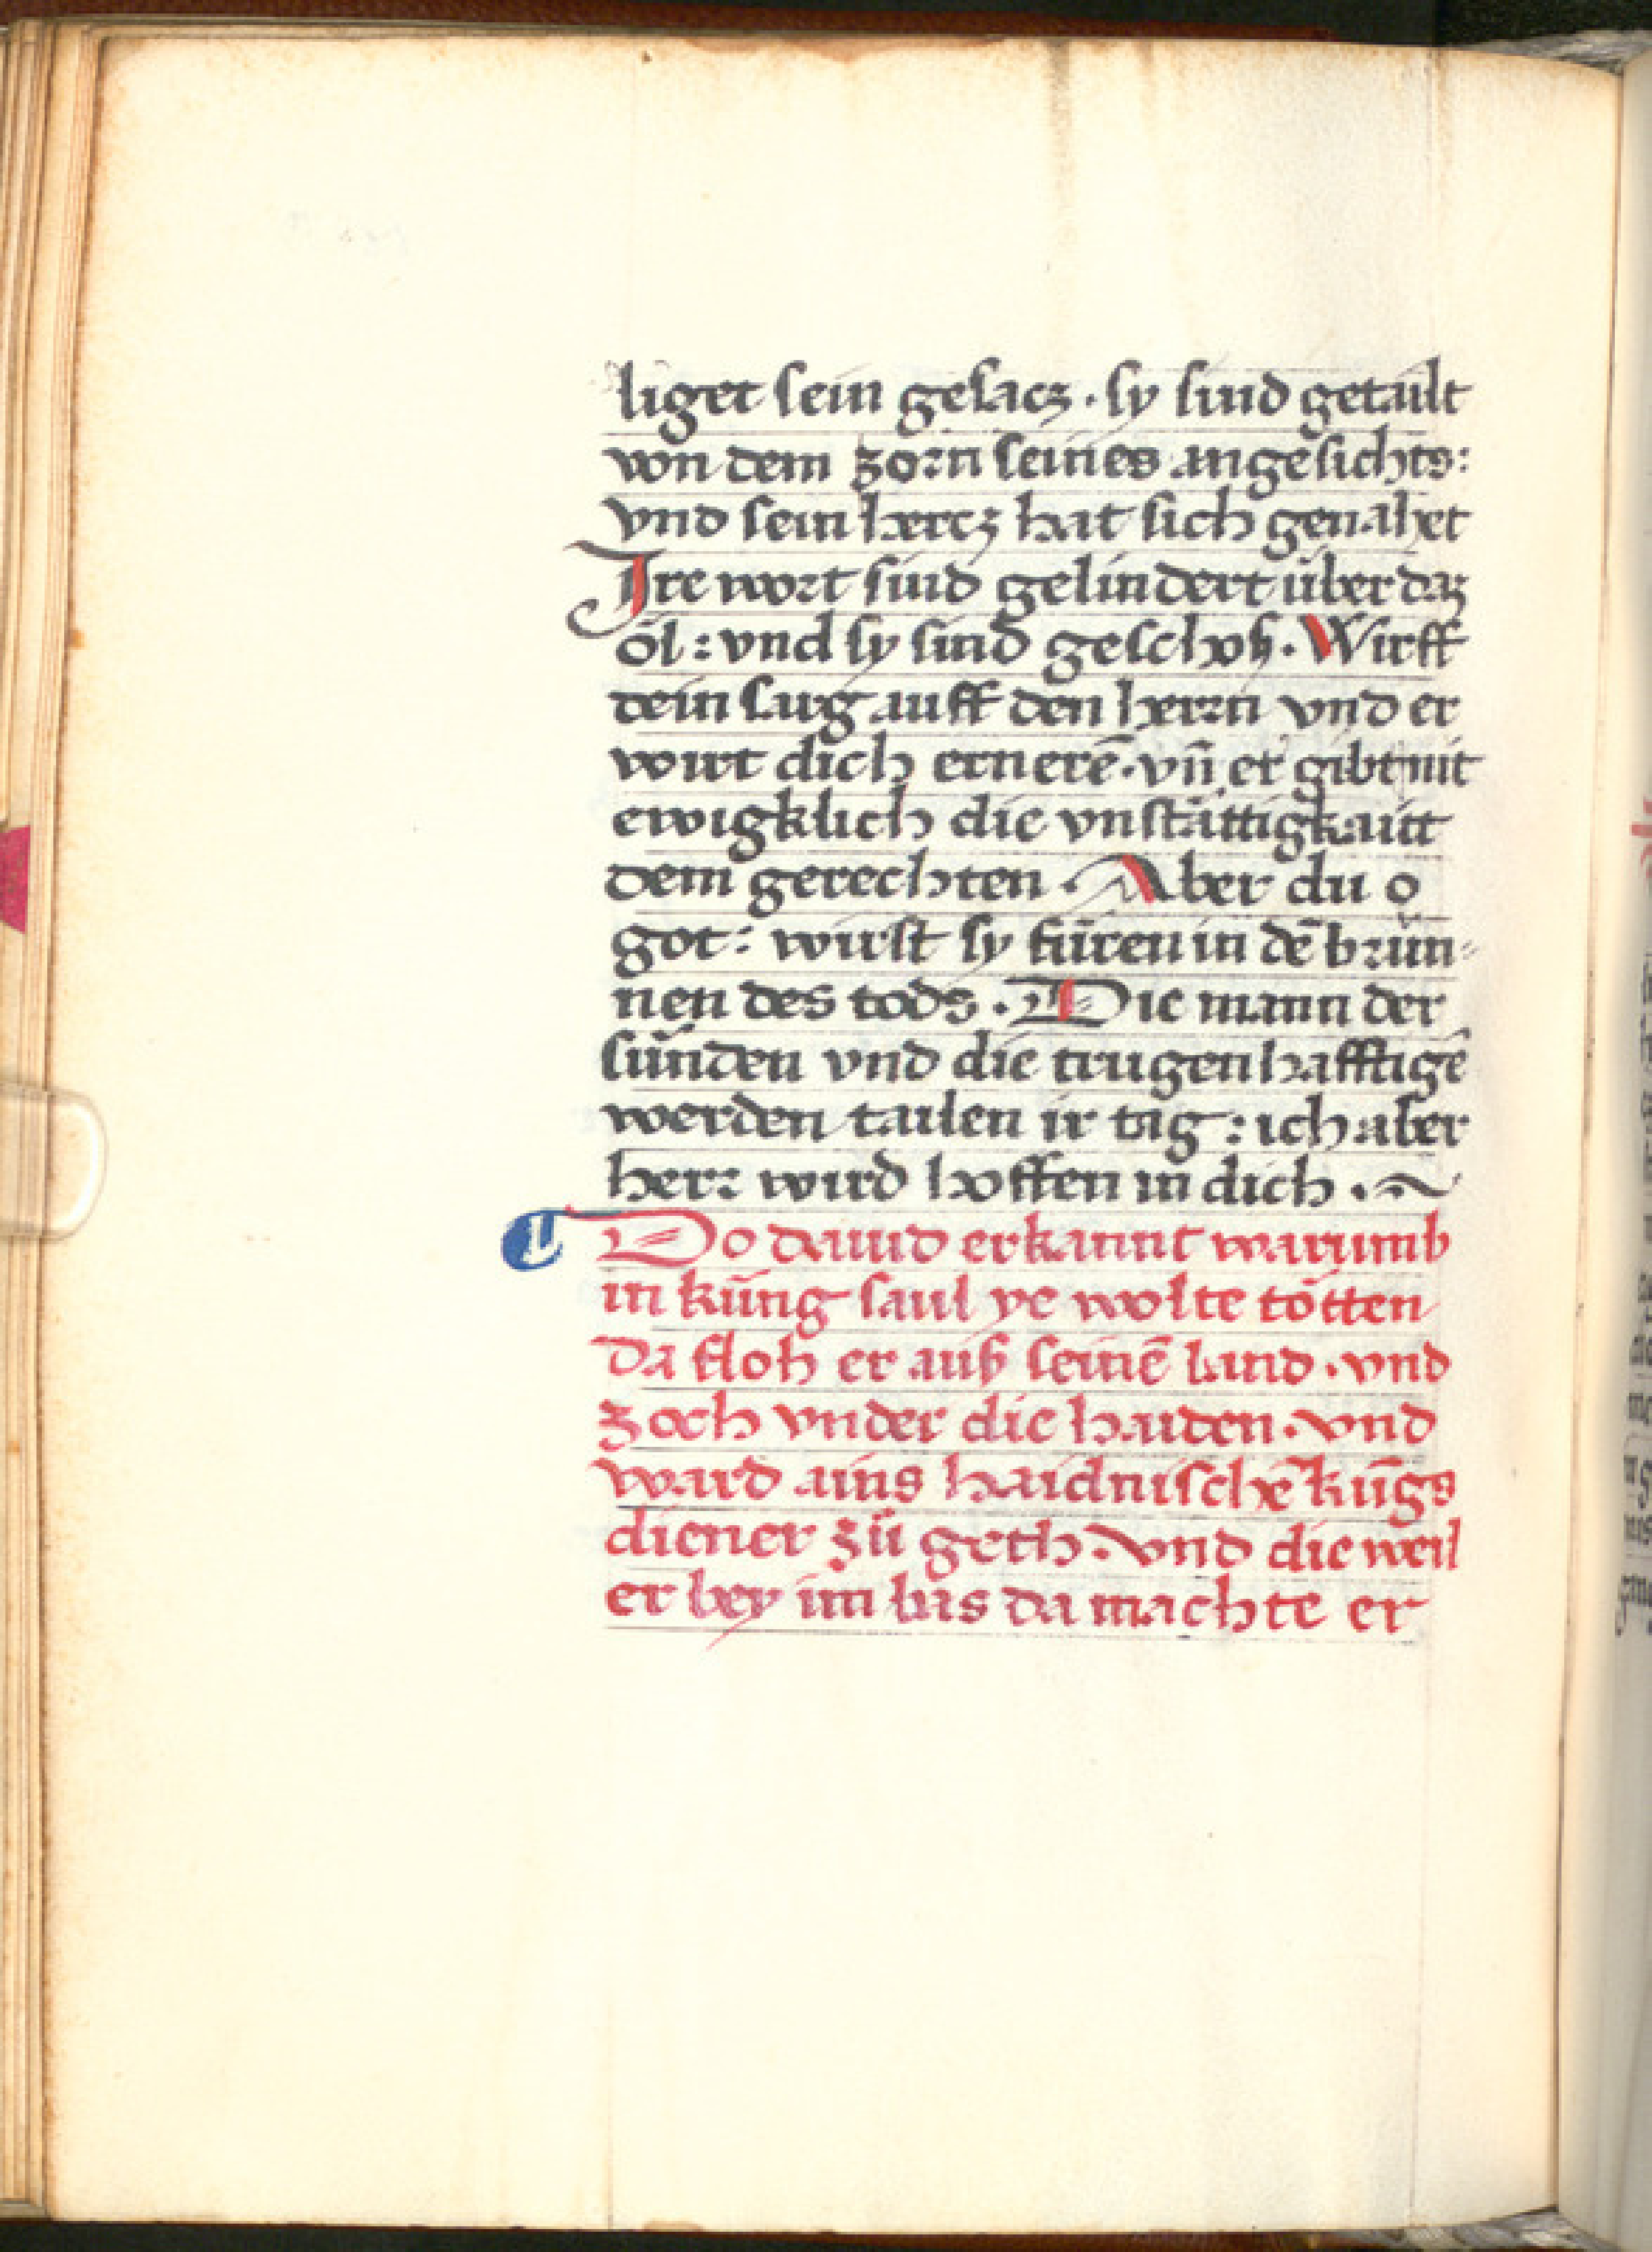 liget sein gesacz · sy sind getailt
von dem zorn seines angesichts:
vnd sein hercz hat sich genahet
Ire wort sind gelindert über daz
öl : vnd sy sind geschoß · Wirff
dein sarg auff den herrn vnd er
wirt dich ernerē · vn̄ er gibt nit
ewigklich die vnstättigkaitt
dem gerechten · Aber du o
got : wirst sy füren in dē brun⸗
nen des tods · Die mann der
sünden vnd die trugenhafftigē
werden tailen ir tag : ich aber
herr wird hoffen in dich · ~
¶ Do dauid erkannt warumb
in küng saul ye wolte tötten
da floh er auß seinē land · vnd
zoch vnder die haiden · vnd
ward ains haidnischē küngs
diener zů geth · vnd die weil
er bey im bas da machte er